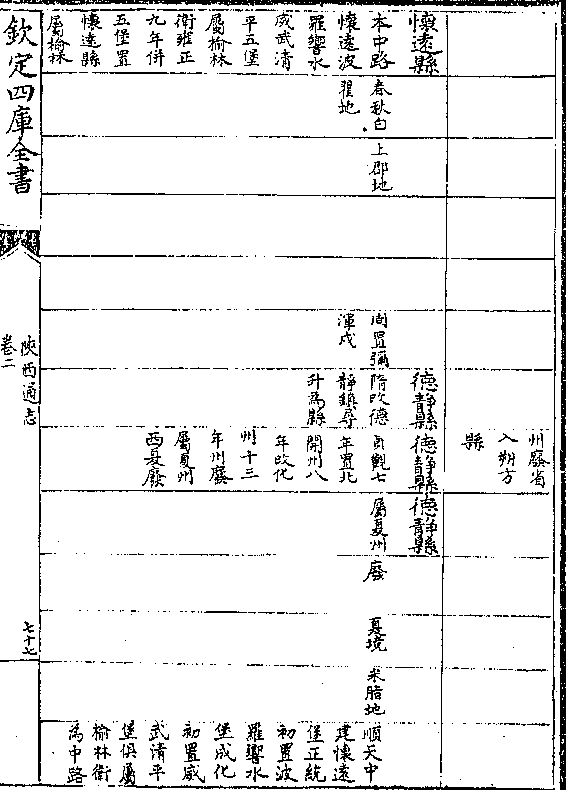 州廢省
入朔方
縣
懷遠縣
本中路
懷遠波
羅響水
威武清
平五堡
屬榆林
衛雍正
九年併
五堡置
懷遠縣
屬榆林
春秋白
翟地
上郡地
周置彌
渾戍
德靜縣
隋改德
靜鎮尋
升為縣
德靜縣
貞觀七
年置北
開州八
年改化
州十三
年州廢
屬夏州
西夏廢
德靜縣
屬夏州
廢
夏境
米脂地
順天中
建懷遠
堡正統
初置波
羅響水
堡成化
初置威
武清平
堡俱屬
榆林衛
為中路
欽定四庫全書
陝西通志
卷二
七十七